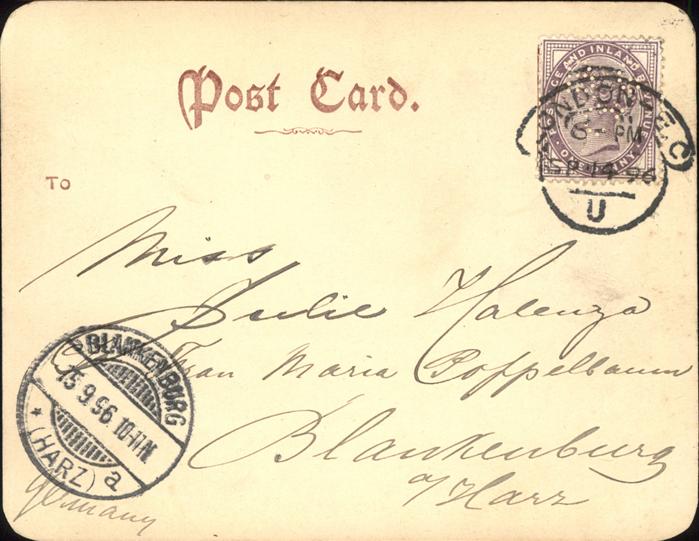 Post Card.
POSTAGE AND INLAND REVENUE
LONDON. E.C
6 - PM
SP 14 96
U
TO
Miss
Julie Halenza
Frau Maria Coppelbaum
Blankenburg
a/Harz
BLANKENBURG
15.9.96.10-11N.
* (HARZ) a
Germany